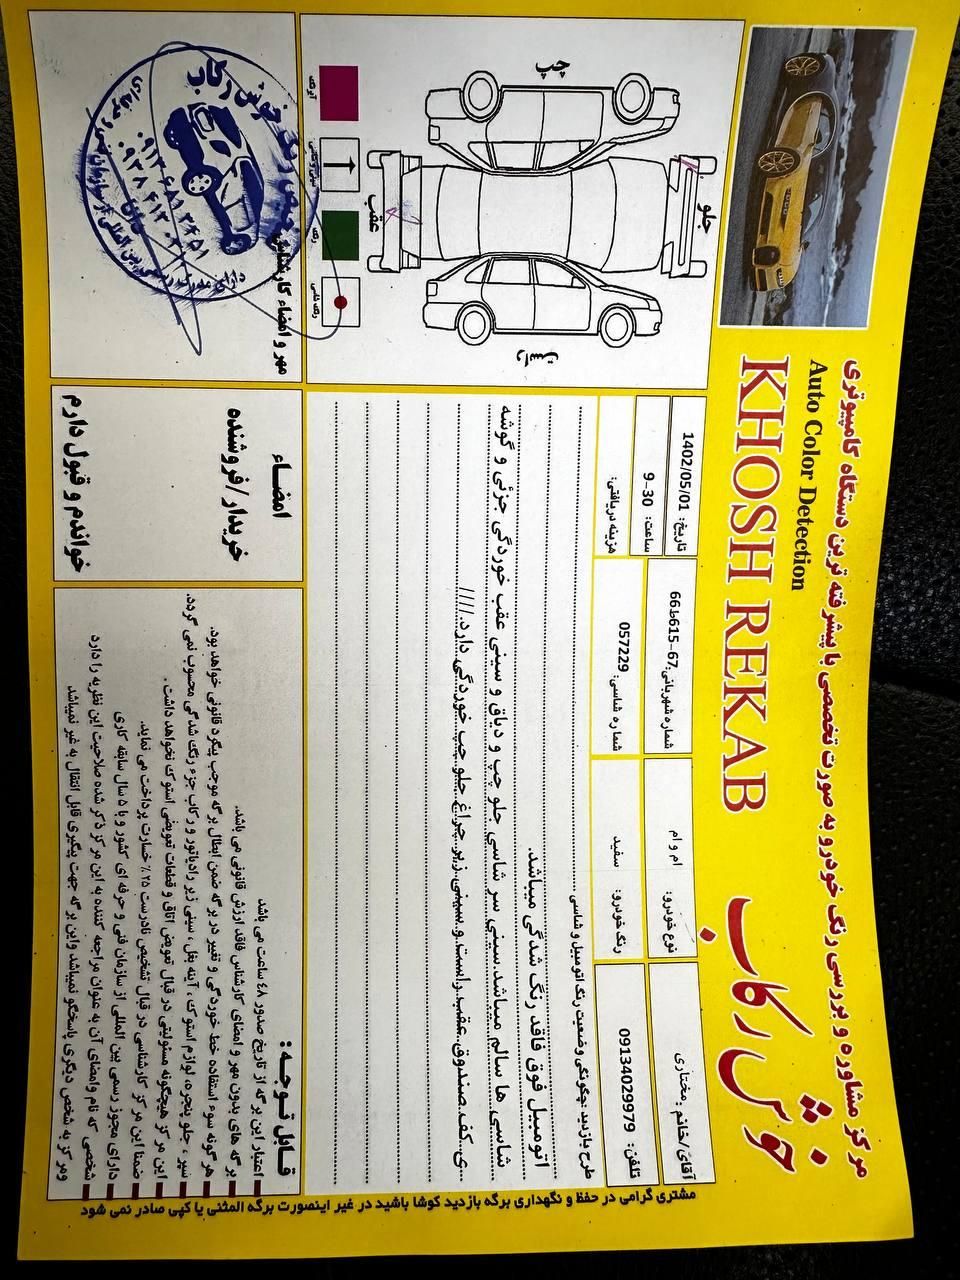 مرکز مشاوره و بررسی رنگ خودرو به صورت تخصصی با پیشرفته ترین دستگاه کامپیوتری
Auto Color Detection
خوش رکاب KHOSH REKAB
آقای/خانم: مختاری
نوع خودرو: ام و ام
شماره شهربانی: 67-615ط66
تاریخ: 1402/05/01
ساعت: 9-30
تلفن: 09134029979
رنگ خودرو: سفید
شماره شاسی: 057229
هزینه دریافتی:
طرح بازدید: چگونگی وضعیت رنگ اتومبیل و شاسی
اتومبیل فوق فاقد رنگ شدگی میباشد.
شاسی ها سالم میباشد.سینی سر شاسی جلو چپ و دیاق و سینی عقب خوردگی جزئی و گوشه
ی کف صندوق عقب راست و سینی زیر چراغ جلو چپ خوردگی دارد./////
چپ
جلو
عقب
راست
آبرنگ
رنگ
مهر و امضاء کارشناس
خوش رکاب
۰۹۱۳ ۶۸۸ ۲۴۵۱
امضاء
خریدار/فروشنده
خواندم و قبول دارم
قابل توجه:
اعتبار این برگه از تاریخ صدور ۴۸ ساعت می باشد
برگه های بدون مهر و امضای کارشناس فاقد ارزش قانونی می باشد.
هرگونه سوء استفاده خط خوردگی و تغییر در برگه ضمن ابطال برگه موجب پیگرد قانونی خواهد بود.
سپر ، جلو پنجره، لوازم استوک ، آینه بغل ، سینی زیر رادیاتور و رکاب جزء رنگ شدگی محسوب نمی گردد.
این مرکز هیچگونه مسئولیتی در قبال تعویض اتاق و قطعات تعویضی استوک نخواهد داشت.
ضمنا این مرکز کارشناسی در قبال تشخیص نادرست ۲۵٪ خسارت پرداخت می نماید.
دارای مجوز رسمی بین المللی از سازمان فنی و حرفه ای کشور و با ۵ سال سابقه کاری
شخصی که نام وامضای آن به عنوان مراجعه کننده به این مرکز ذکر شده صلاحیت این نظریه را دارد
ومرکز به شخص دیگری پاسخگو نمیباشد واین برگه جهت پیگیری قابل انتقال به غیر نمیباشد
مشتری گرامی در حفظ و نگهداری برگه بازدید کوشا باشید در غیر اینصورت برگه المثنی یا کپی صادر نمی شود